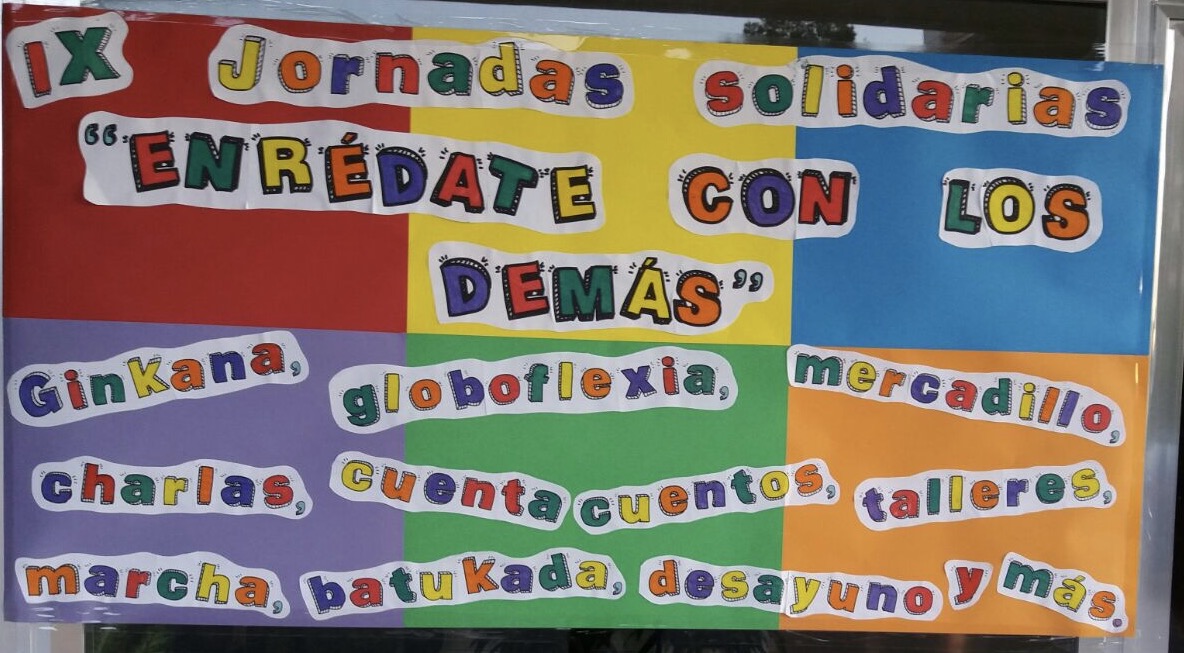 IX Jornadas solidarias
“ENRÉDATE CON LOS
DEMÁS”
Ginkana, globoflexia, mercadillo,
charlas, cuenta cuentos, talleres,
marcha, batukada, desayuno y más.